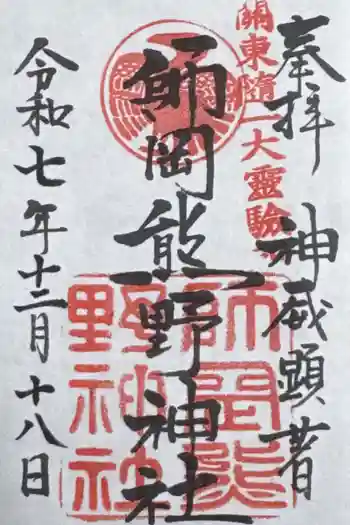 奉拝
神威顕著
關東随一大靈驗所
師岡熊野神社
師岡熊
野神社
令和七年十二月十八日